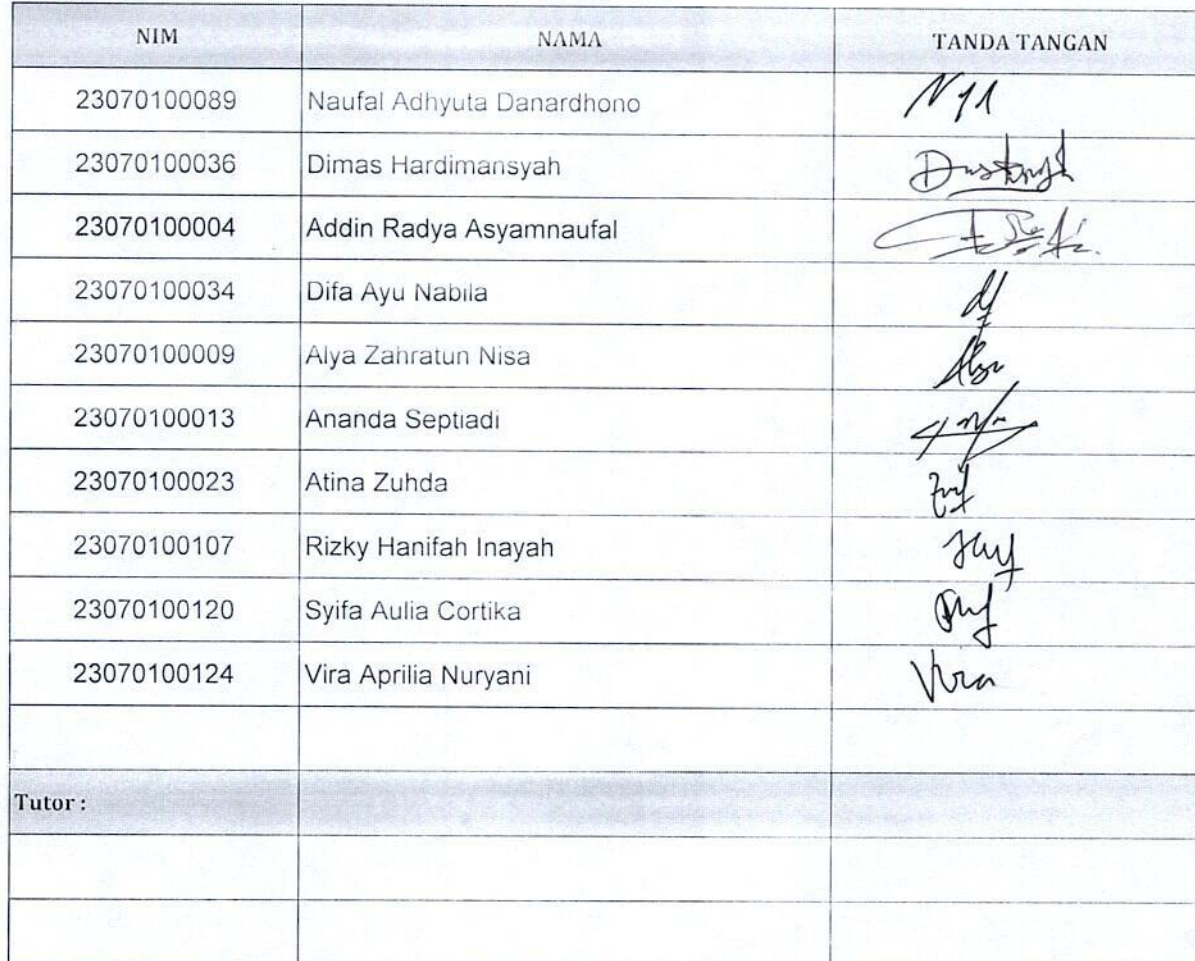 NIM NAMA TANDA TANGAN
23070100089 Naufal Adhyuta Danardhono
23070100036 Dimas Hardimansyah
23070100004 Addin Radya Asyamnaufal
23070100034 Difa Ayu Nabila
23070100009 Alya Zahratun Nisa
23070100013 Ananda Septiadi
23070100023 Atina Zuhda
23070100107 Rizky Hanifah Inayah
23070100120 Syifa Aulia Cortika
23070100124 Vira Aprilia Nuryani Vira
Tutor :